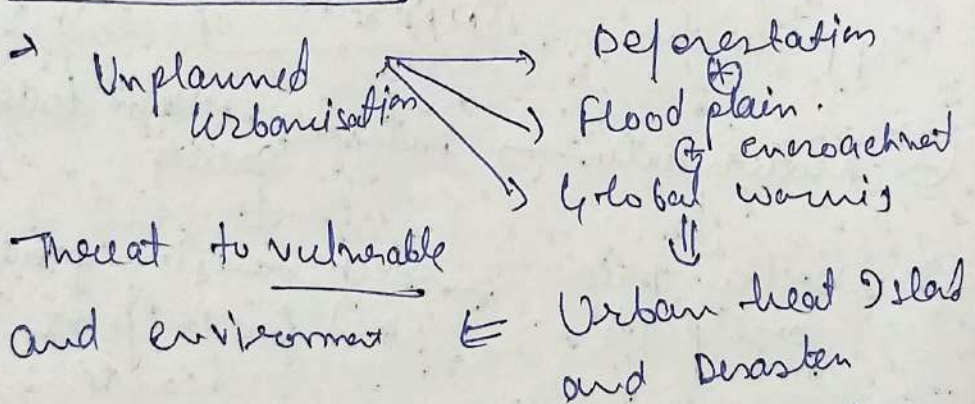 → Unplanned Urbanisation
Deforestation
⊕
Flood plain.
⊕ encroachment
Global warming
⇓
Urban heat Island
and Disaster
⇐
Threat to vulnerable
and environment